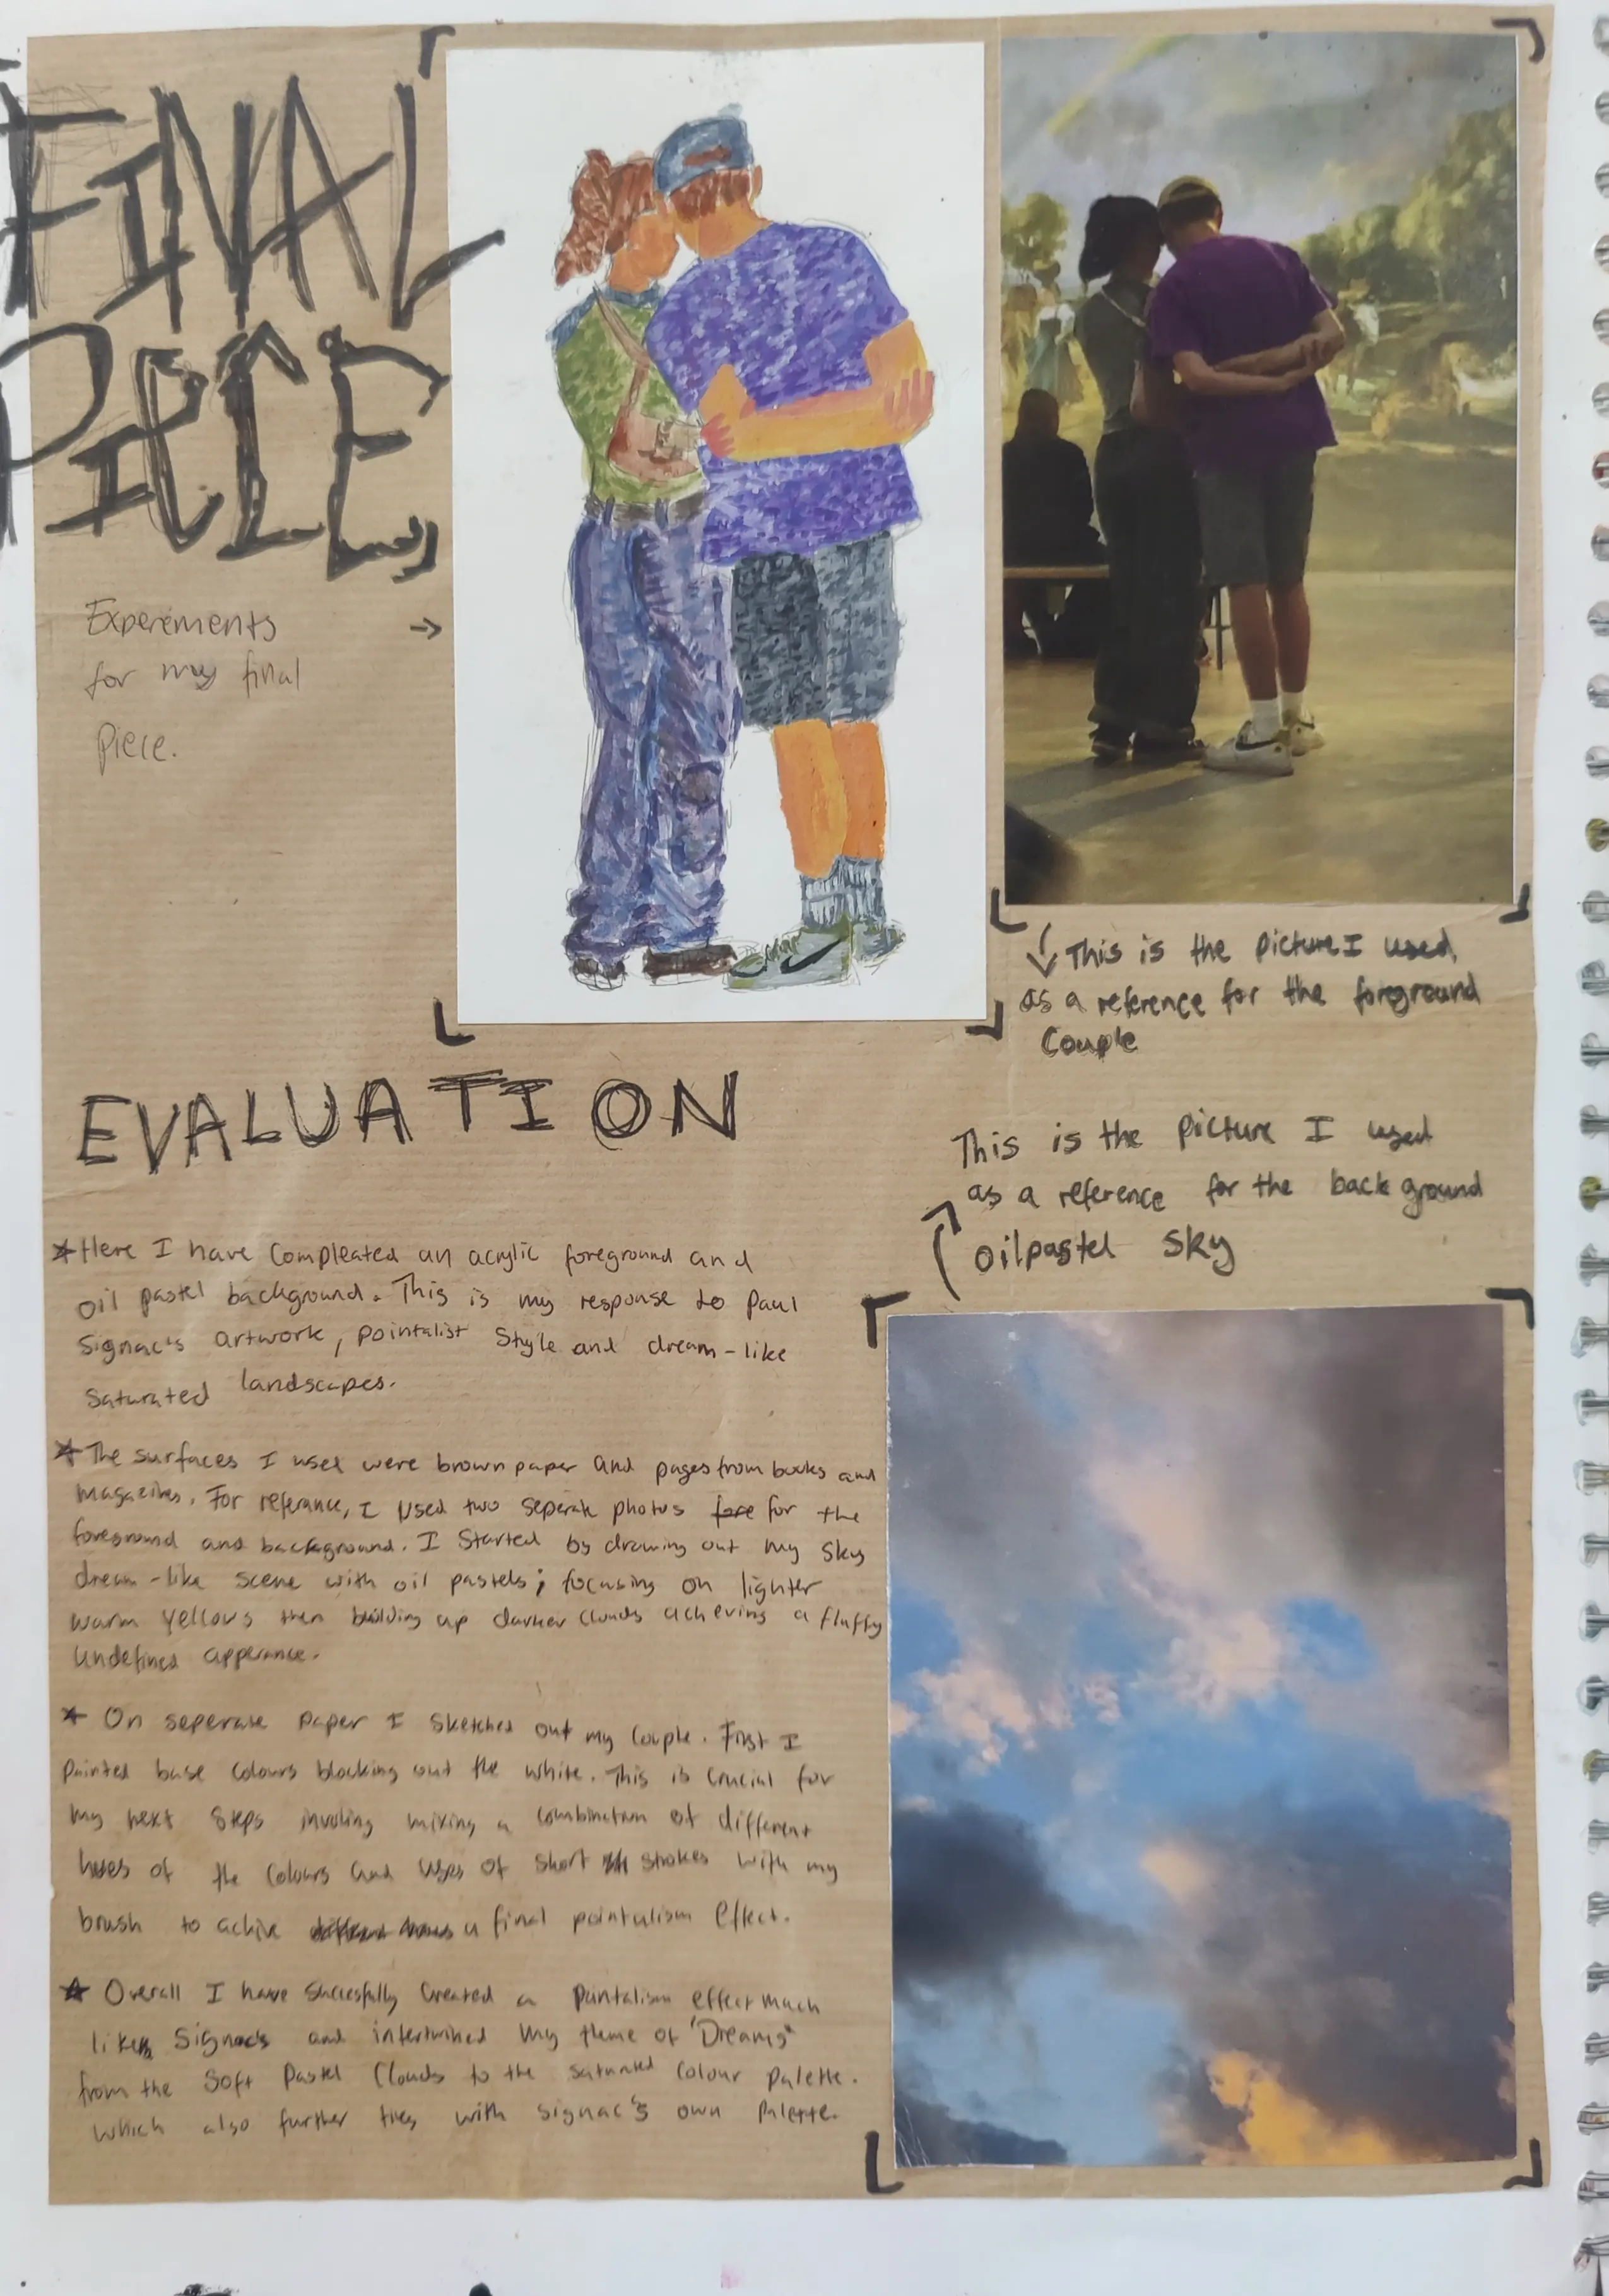 FINAL
PIECE
Experements
for my final
Piece.
→
This is the picture I used
as a reference for the foreground
Couple
EVALUATION
This is the picture I used
as a reference for the back ground
oilpastel sky
★ Here I have Compleated an acrylic foreground and
oil pastel background. This is my response to Paul
Signac's artwork, pointalist style and dream-like
saturated landscapes.
★ The surfaces I used were brown paper and pages from books and
magazines. For referance, I used two seperate photos fore for the
foreground and background. I started by drawing out my sky
dream-like scene with oil pastels; focusing on lighter
warm yellows then building up darker clouds acheving a fluffy
undefined apperance.
★ On seperate paper I sketched out my couple. First I
painted base colours blocking out the white. This is crucial for
my next steps involing mixing a combination of different
hues of the colours and uses of short strokes with my
brush to achive a final pointalism effect.
★ Overall I have succesfully created a pointalism effect much
like Signacs and intertwined my theme of 'Dreams'
from the soft pastel clouds to the saturated colour palette.
which also further ties with Signac's own palette.